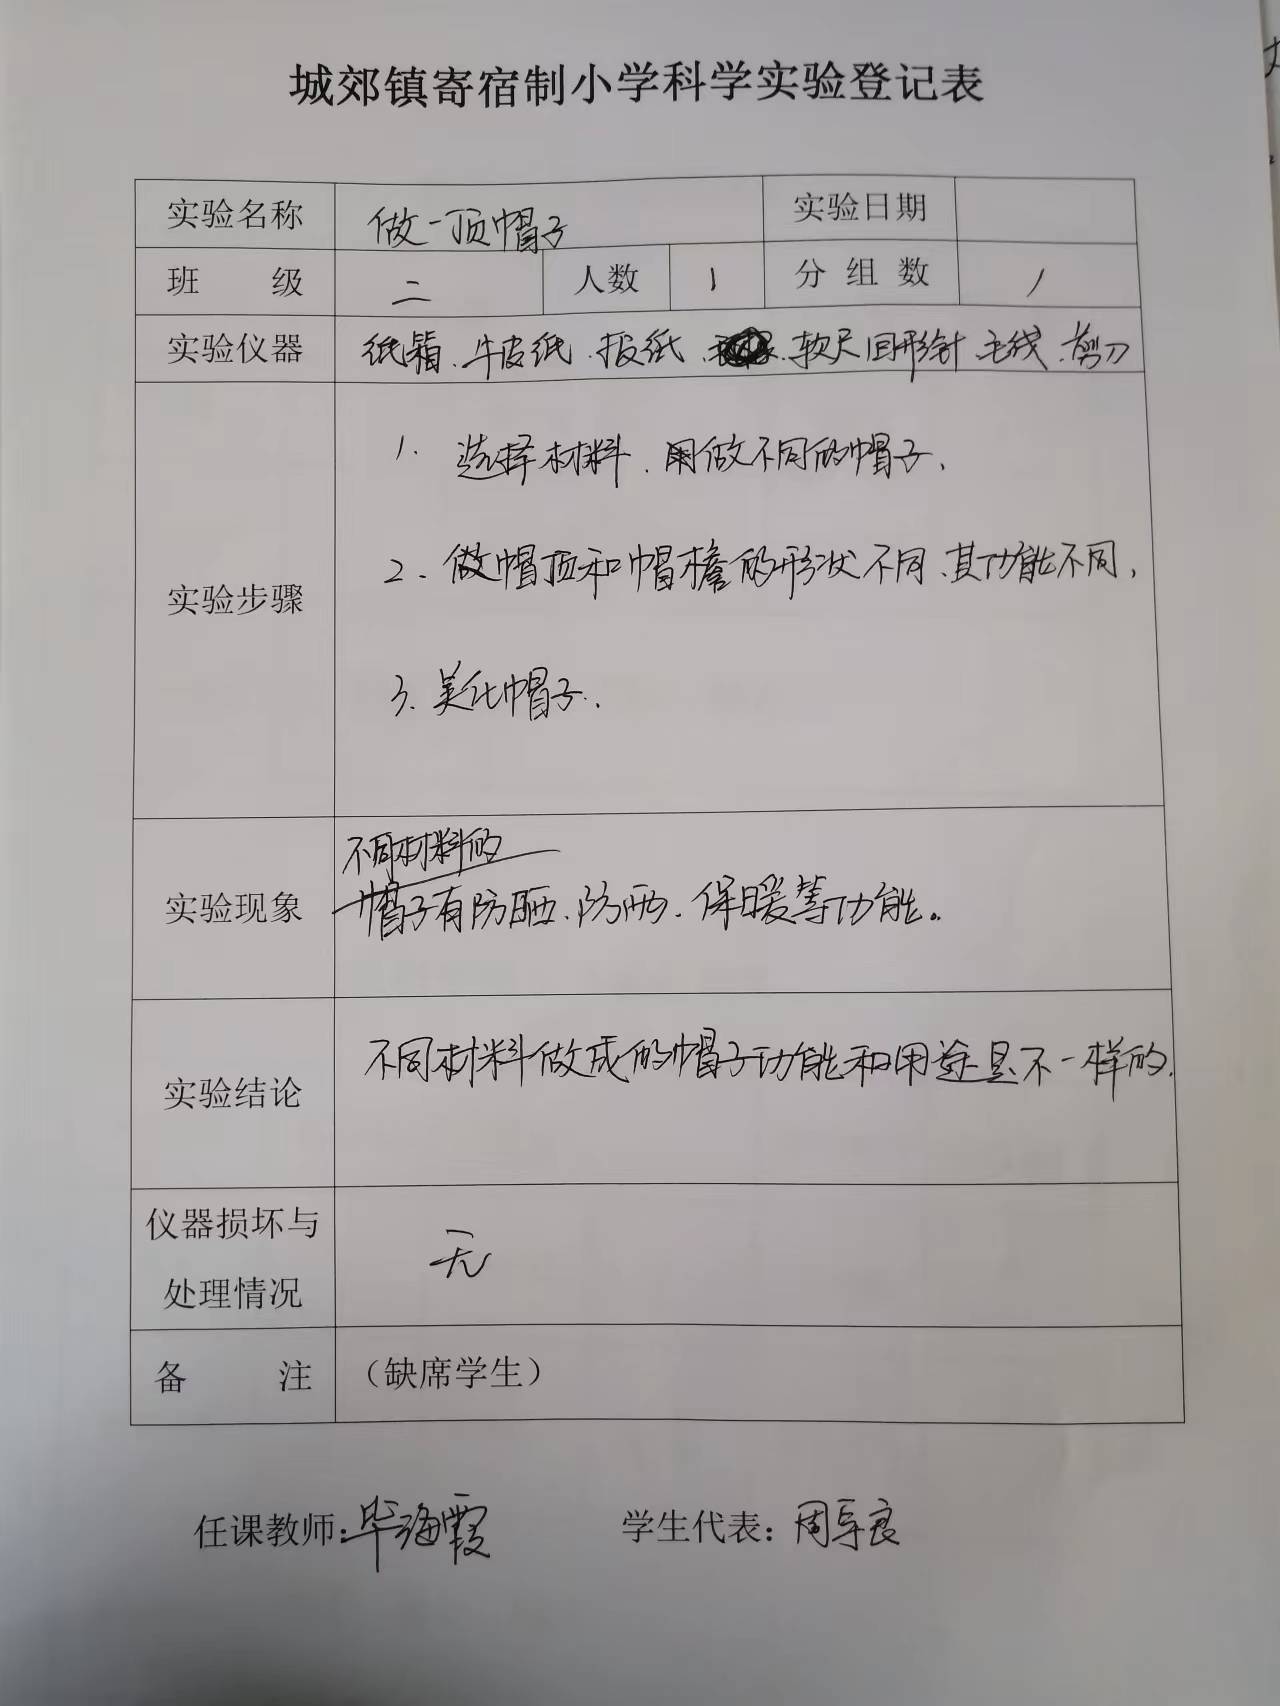 城郊镇寄宿制小学科学实验登记表
实验名称 做一顶帽子 实验日期
班 级 二 人数 1 分组数 1
实验仪器 纸箱、牛皮纸、报纸、软尺 回形针 毛线、剪刀
1. 选择材料、用做不同的帽子、
2. 做帽顶和帽檐的形状不同、其功能不同,
实验步骤
3. 美化帽子.
不同材料的
实验现象 帽子有防晒、防雨、保暖等功能。
不同材料做成的帽子功能和用途是不一样的.
实验结论
仪器损坏与
处理情况
无
备 注 （缺席学生）
任课教师:毕海霞 学生代表:周